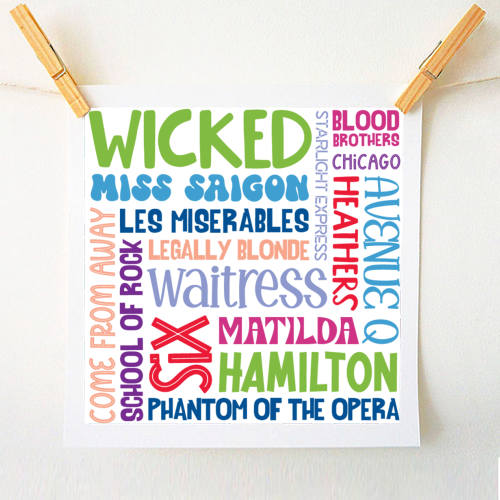 WICKED
MISS SAIGON
LES MISERABLES
LEGALLY BLONDE
waitress
STARLIGHT EXPRESS
BLOOD
BROTHERS
CHICAGO
HEATHERS
AVENUE Q
COME FROM AWAY
SCHOOL OF ROCK
SIX
MATILDA
HAMILTON
PHANTOM OF THE OPERA